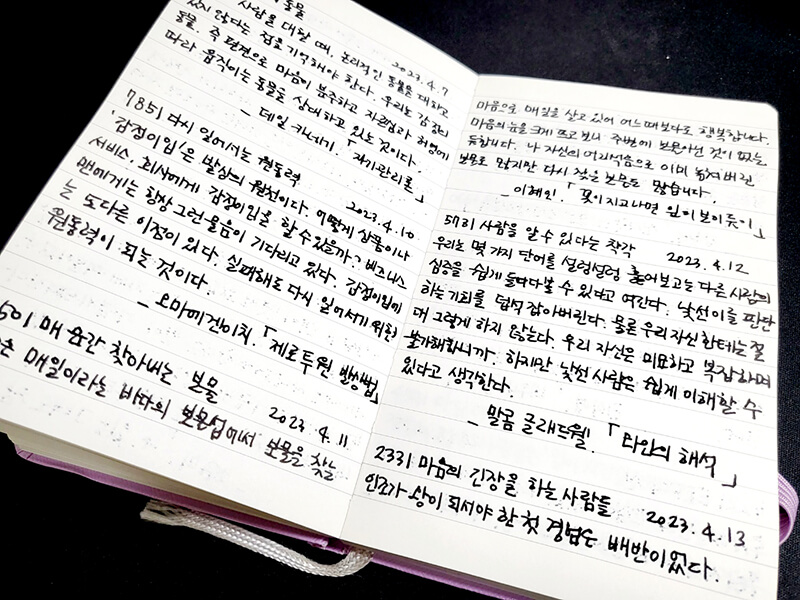 동물 2023.4.7
사람을 대할 때, 논리적인 동물을 대하고
있지 않다는 점을 기억해야 한다. 우리는 감정의
동물, 즉 편견으로 마음이 분주하고 자존심과 허영에
따라 움직이는 동물을 상대하고 있는 것이다.
- 데일 카네기. 「자기관리론」
785| 다시 일어서는 원동력 2023.4.10
'감정이입'은 발상의 원천이다. 어떻게 상품이나
서비스, 회사에게 감정이입을 할 수 있을까? 비즈니스
맨에게는 항상 그런 물음이 기다리고 있다. 감정이입에
는 또다른 이점이 있다. 실패해도 다시 일어서기 위한
원동력이 되는 것이다.
- 오마에 겐이치. 「제로투원 발상법」
501 매 순간 찾아내는 보물 2023.4.11
매일이라는 바다의 보물섬에서 보물을 찾는
마음으로 매일을 살고 있어 어느 때보다도 행복합니다.
마음의 눈을 크게 뜨고 보니 주변에 보물 아닌 것이 없는
듯합니다. 나 자신의 어리석음으로 이미 놓쳐버린
보물도 많지만 다시 찾을 보물도 많습니다.
- 이해인. 「꽃이 지고 나면 잎이 보이듯이」
573| 사람을 알 수 있다는 착각 2023.4.12
우리는 몇 가지 단어를 설렁설렁 훑어보고는 다른 사람의
심중을 쉽게 들여다볼 수 있다고 여긴다. 낯선 이를 판단
하는 기회를 덥석 잡아버린다. 물론 우리 자신한테는 절
대 그렇게 하지 않는다. 우리 자신은 미묘하고 복잡하며
불가해합니까. 하지만 낯선 사람은 쉽게 이해할 수
있다고 생각한다.
- 말콤 글래드웰. 「타인의 해석」
233| 마음의 긴장을 하는 사람들 2023.4.13
인조가 왕이 되서야 한 첫 경험은 배반이었다.